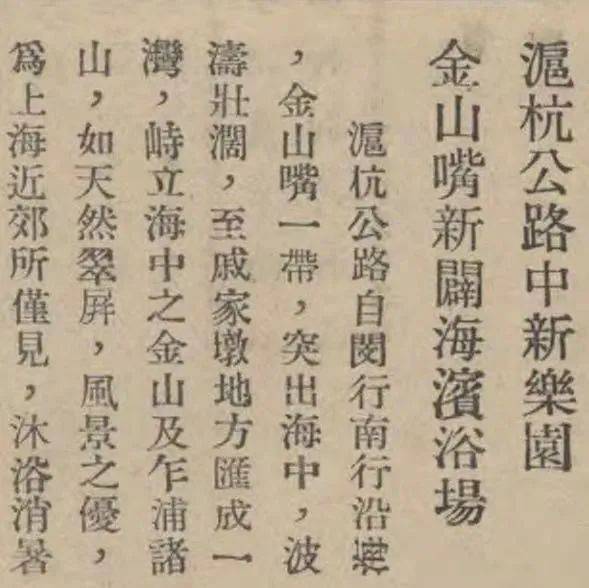 滬杭公路中新樂園
金山嘴新闢海濱浴場
滬杭公路自閔行南行沿海
，金山嘴一帶，突出海中，波
濤壯濶，至戚家墩地方匯成一
灣，峙立海中之金山及乍浦諸
山，如天然翠屛，風景之優，
爲上海近郊所僅見，沐浴消暑